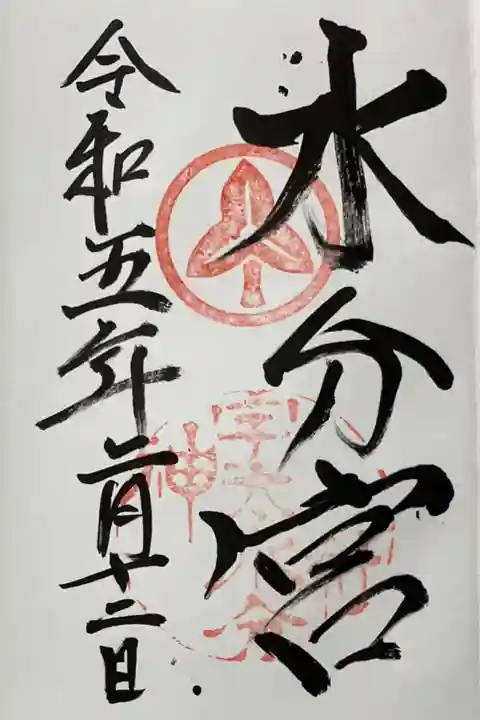 水分宮
令和五年二月十二日